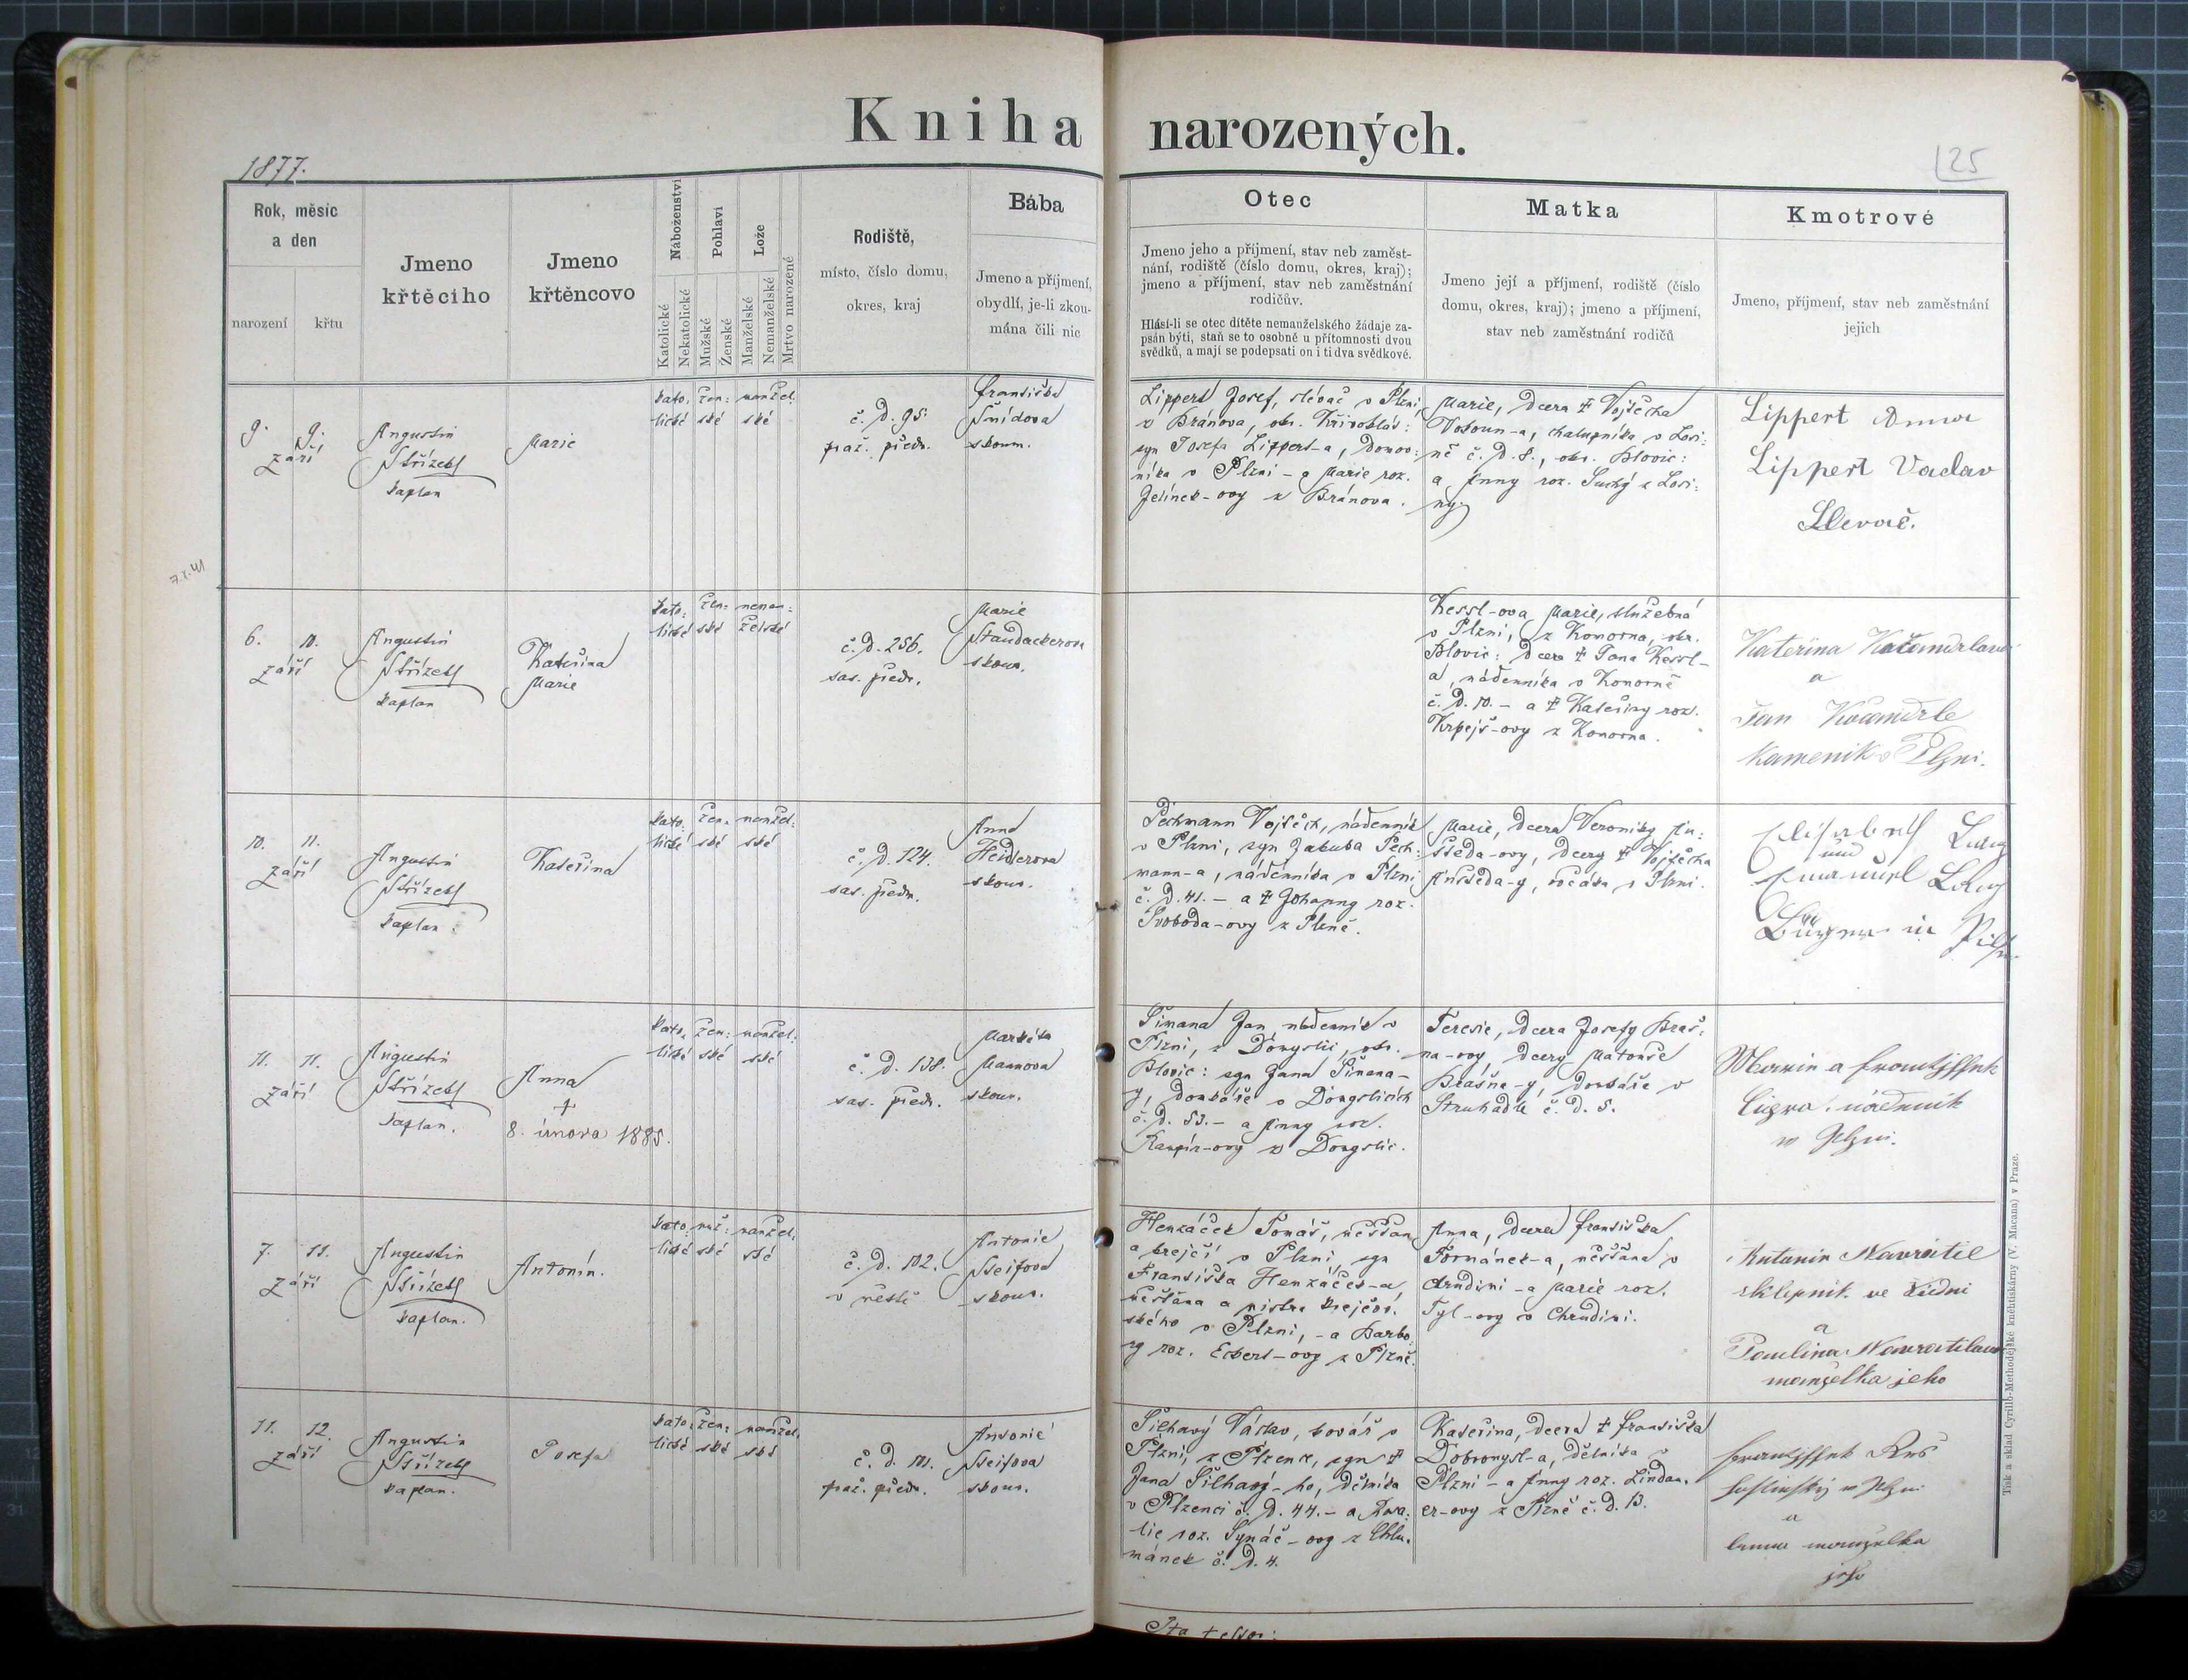 Kniha narozených.
1877.
125
Rok, měsíc
a den
narození
křtu
Jmeno
křtěcího
Jmeno
křtěncovo
Náboženství
Katolické
Nekatolické
Pohlaví
Mužské
Ženské
Lože
Manželské
Nemanželské
Mrtvo narozené
Rodiště,
místo, číslo domu,
okres, kraj
Bába
Jmeno a příjmení,
obydlí, je-li zkou-
mána čili nic
Otec
Jmeno jeho a příjmení, stav neb zaměst-
nání, rodiště (číslo domu, okres, kraj);
jmeno a příjmení, stav neb zaměstnání
rodičův.
Hlásí-li se otec dítěte nemanželského žádaje za-
psán býti, staň se to osobně u přítomnosti dvou
svědků, a mají se podepsati on i ti dva svědkové.
Matka
Jmeno její a příjmení, rodiště (číslo
domu, okres, kraj); jmeno a příjmení,
stav neb zaměstnání rodičů
Kmotrové
Jmeno, příjmení, stav neb zaměstnání
jejich
9. 9.
září
Augustin
Střízek
kaplan
Marie
kato:
lické
žen:
ské
manžel:
ské
č. d. 95.
praž. předm.
Františka
Šmídova
zkoum.
Lippert Josef, slévač v Plzni,
z Bránova, okr. Křivoklát:
syn Josefa Lippert-a, domov:
níka v Plzni - a Marie roz.
Jelínek-ovy z Bránova.
Marie, dcera † Vojtěcha
Votoun-a, chalupníka v Losi:
né č. d. 8., okr. Blovic:
a Anny roz. Suchý z Losi:
ny.
Lippert Anna
Lippert Vaclav
Slevač.
7.X.41
6. 10.
září
Augustin
Střízek
kaplan
Kateřina
Marie
kato:
lické
žen:
ské
neman:
želské
č. d. 256.
sas. předm.
Marie
Staudackerova
zkoum.
Kessl-ova Marie, služebná
v Plzni, z Komorna, okr.
Blovic: dcera † Jana Kessl-
a, nádenníka v Komorně
č. d. 10. - a † Kateřiny roz.
Krpejš-ovy z Komorna.
Kateřina
a
Jan Kočandrle
kamenik v Plzni.
10. 11.
září
Augustin
Střízek
kaplan.
Kateřina
kato:
lické
žen:
ské
manžel:
ské
č. d. 124.
sas. předm.
Anna
Heidlerova
zkoum.
Pechmann Vojtěch, nádenník
v Plzni, syn Jakuba Pech:
mann-a, nádenníka v Plzni
č. d. 41. - a † Johanny roz.
Svoboda-ovy z Plzně.
Marie, dcera Veroniky
-ovy, dcery † Vojtěcha
-y, v Plzni.
Elisabeth
und
Emanuel
Bürger in Pilsen
11. 11.
září
Augustin
Střízek
kaplan.
Anna
†
8. února 1885.
kato:
lické
žen:
ské
manžel:
ské
č. d. 138.
sas. předm.
Markéta
Mannova
zkoum.
Šimana Jan, nádenník v
Plzni, z Donyslic, okr.
Blovic: syn Jana Šimana-
y, domkáře v Donyslicích
č. d. 53. - a Anny roz.
z Donyslic.
Teresie, dcera Josefy Braš:
na-ovy, dcery Matouše
Brašna-y, domkáře v
Struhadle č. d. 5.
nádenník
w Plzni.
7. 11.
září
Augustin
Střízek
kaplan.
Antonín.
kato:
lické
muž:
ské
manžel:
ské
č. d. 102.
v městě
Antonie
Seifova
zkoum.
Henzáček Tomáš, měšťan
a krejčí v Plzni, syn
Františka Henzáček-a,
měšťana a mistra krejčov:
ského v Plzni, - a Barbo:
ry roz. Eckert-ovy z Plzně.
Anna, dcera Františka
Formánek-a, měšťana v
Chrudimi - a Marie roz.
Tyl-ovy v Chrudimi.
Antonin Navrátil
sklepnik ve Vídni
a
Paulina Navratilova
manželka jeho
11. 12.
září
Augustin
Střízek
kaplan.
Josefa
kato:
lické
žen:
ské
manžel:
ské
č. d. 101.
praž. předm.
Antonie
Seifova
zkoum.
Šilhavý Václav, kovář v
Plzni, z Plzence, syn †
Jana Šilhavý-ho, dělníka
v Plzenci č. d. 44. - a Rosa:
lie roz. Synáč-ovy z Chlu:
mánek č. d. 4.
Kateřina, dcera † Františka
Dobromysl-a, dělníka v
Plzni - a Anny roz. Lindau:
er-ovy z Plzně č. d. 13.
w Plzni
a
manželka
jeho
Tisk a sklad Cyrillo-Methodějské knihtiskárny (V. Macana) v Praze.